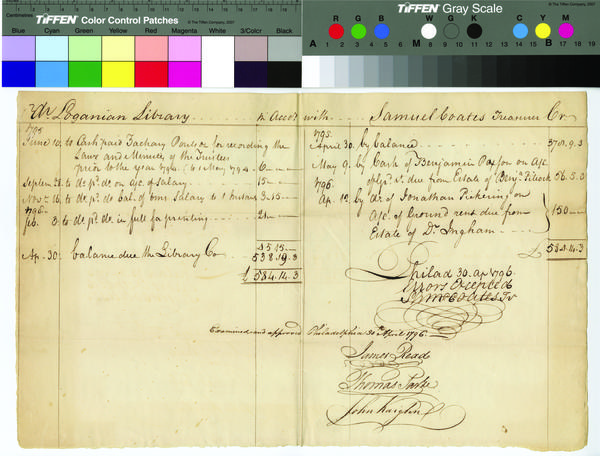 TIFFEN Color Control Patches
© The Tiffen Company, 2007
Blue Cyan Green Yellow Red Magenta White 3/Color Black
TIFFEN Gray Scale
© The Tiffen Company, 2007
R G B W G K C Y M
A 1 2 3 4 5 6 M 8 9 10 11 12 13 14 15 B 17 18 19
Dr Loganian Library in Acco.t with Samuel Coates Treasurer Cr
1795
June 10. to Cash paid Zachary Poulson for recording the
Laws and Minutes of the Trustees
prior to the Year 1794 (to 1 May 1794 6
Septem 28. to do pd. do on a/c of Salary 15
Nov. 16. to do pd. do bal. of oms Salary to 1 instant 3.15
1796
feb. 3. to do pd. do in full for printing 21
45 15
Ap. 30. balance due the Library Co 538.19.3
£ 584.14.3
1795
April 30. by balance 378.9.3
May 9. by Cash of Benjamin Paxson on A/c
due from Estate of Benjn 56.5.0
1796
Ap. 12. by do. of Jonathan Pickering on
A/c. of Ground rent due from
Estate of Dr. Ingham 150
£ 584.14.3
Philad 30 ap 1796
Errors Excepted
Saml Coates Tr
Examined and approved Philadelphia 30th April 1796
James Read
Thomas Parke
John Kaighn